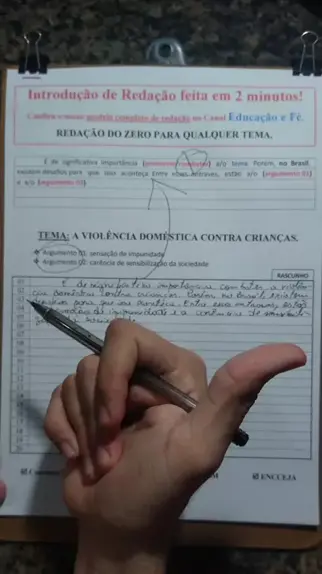 Introdução de Redação feita em 2 minutos!
Confira o nosso modelo completo de redação no Canal Educação e Fé.
REDAÇÃO DO ZERO PARA QUALQUER TEMA.
É de significativa importância a/o tema. Porém, no Brasil,
existem desafios para que isso aconteça. Entre esses entraves, estão a/o (argumento 01)
e a/o (argumento 02).
TEMA: A VIOLÊNCIA DOMÉSTICA CONTRA CRIANÇAS.
Argumento 01: sensação de impunidade
Argumento 02: carência de sensibilização da sociedade
RASCUNHO
É de significativa importância combater a violên-
cia doméstica contra crianças. Porém, no Brasil, existem
desafios para que isso aconteça. Entre esses entraves, estão
a impunidade e a carência de
ENCCEJA